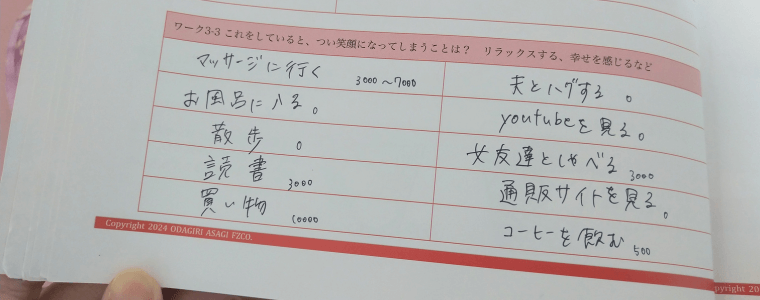 ワーク3-3 これをしていると、つい笑顔になってしまうことは？ リラックスする、幸せを感じるなど
マッサージに行く 3000〜7000
お風呂に入る 0
散歩 0
読書 3000
買い物 10000
夫とハグする 0
youtubeを見る 0
女友達としゃべる 3000
通販サイトを見る 0
コーヒーを飲む 500
Copyright 2024 ODAGIRI ASAGI FZCO.
pyright 20